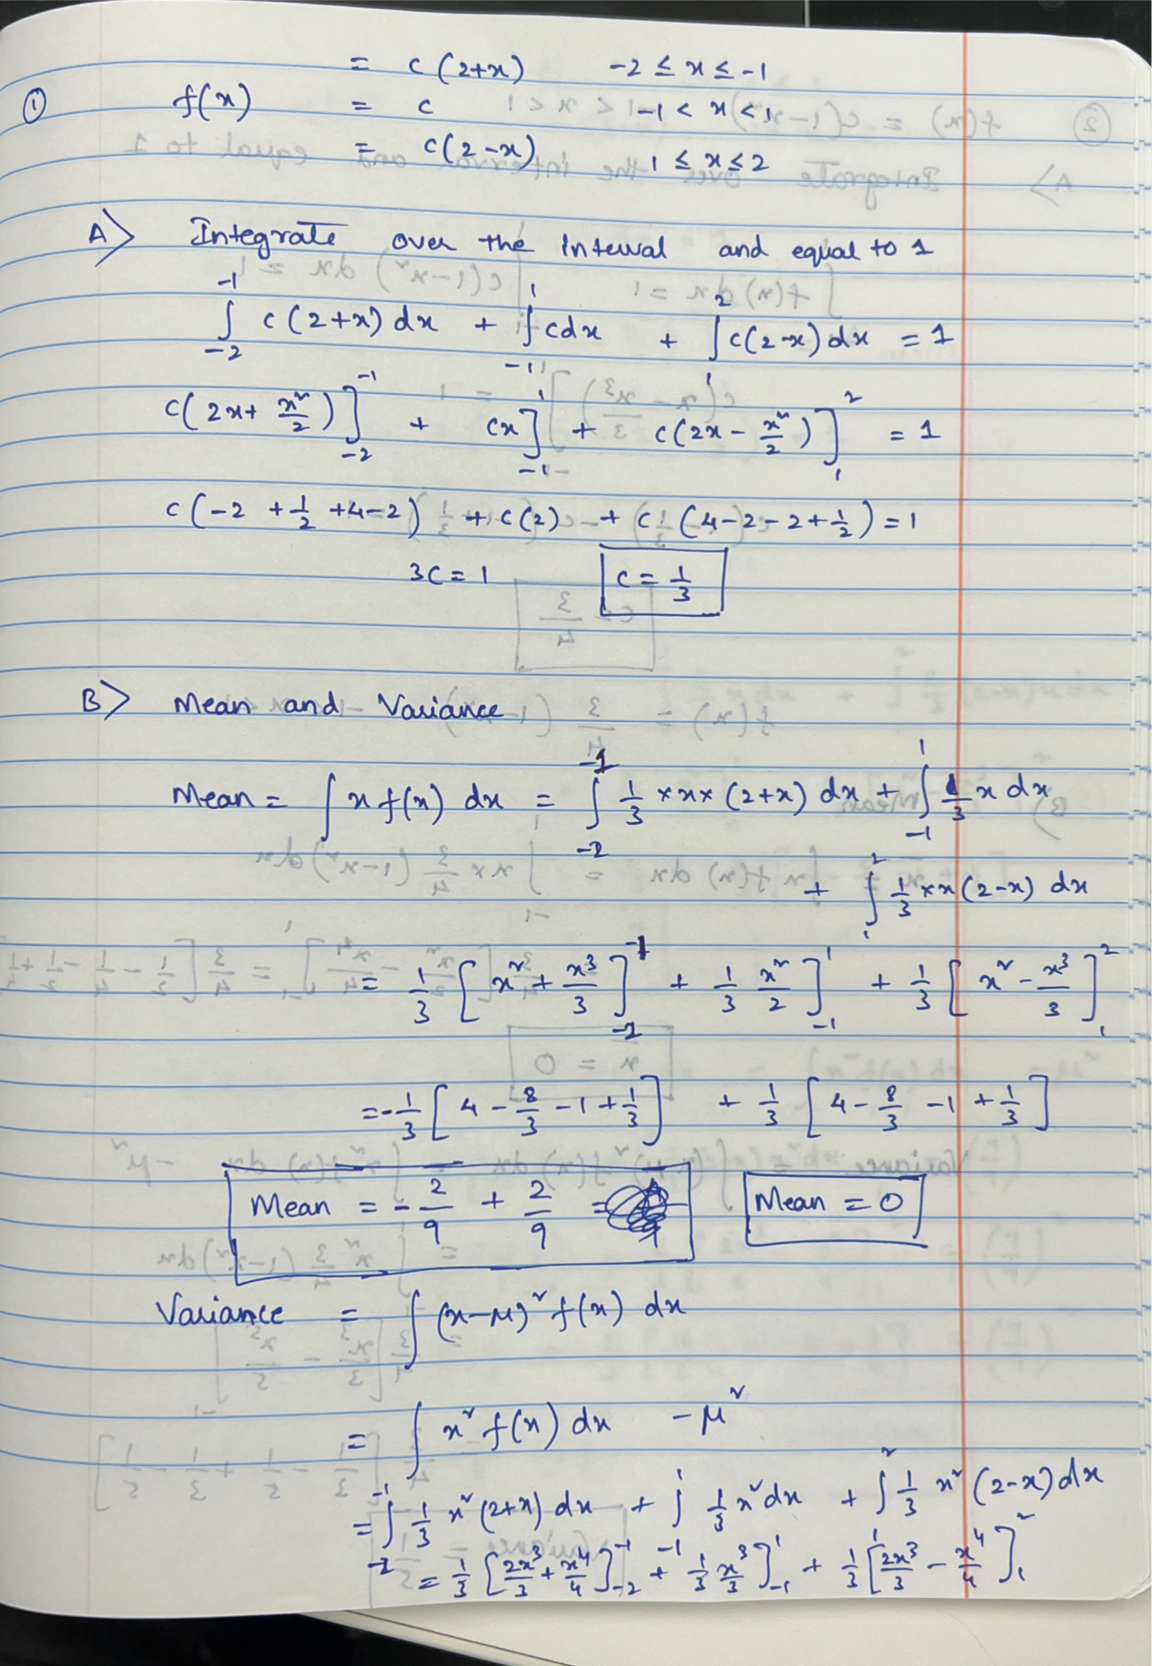 = c(2+x) -2 ≤ x ≤ -1
① f(x) = c -1 < x < 1
= c(2-x) 1 ≤ x ≤ 2
A> Integrate over the interval and equal to 1
∫_{-2}^{-1} c(2+x) dx + ∫_{-1}^{1} c dx + ∫_{1}^{2} c(2-x) dx = 1
c(2x + x²/2)]_{-2}^{-1} + cx]_{-1}^{1} + c(2x - x²/2)]_{1}^{2} = 1
c(-2 + 1/2 + 4 - 2) + c(2) + c(4 - 2 - 2 + 1/2) = 1
3c = 1 c = 1/3
B> Mean and Variance
Mean = ∫ x f(x) dx = ∫_{-2}^{-1} 1/3 × x × (2+x) dx + ∫_{-1}^{1} 1/3 x dx
+ ∫_{1}^{2} 1/3 × x (2-x) dx
= 1/3 [x² + x³/3]_{-2}^{-1} + 1/3 x²/2]_{-1}^{1} + 1/3 [x² - x³/3]_{1}^{2}
= -1/3 [4 - 8/3 - 1 + 1/3] + 1/3 [4 - 8/3 - 1 + 1/3]
Mean = -2/9 + 2/9 = Mean = 0
Variance = ∫ (x-μ)² f(x) dx
= ∫ x² f(x) dx - μ²
= ∫_{-2}^{-1} 1/3 x² (2+x) dx + ∫_{-1}^{1} 1/3 x² dx + ∫_{1}^{2} 1/3 x² (2-x) dx
= 1/3 [2x³/3 + x⁴/4]_{-2}^{-1} + 1/3 x³/3]_{-1}^{1} + 1/3 [2x³/3 - x⁴/4]_{1}^{2}